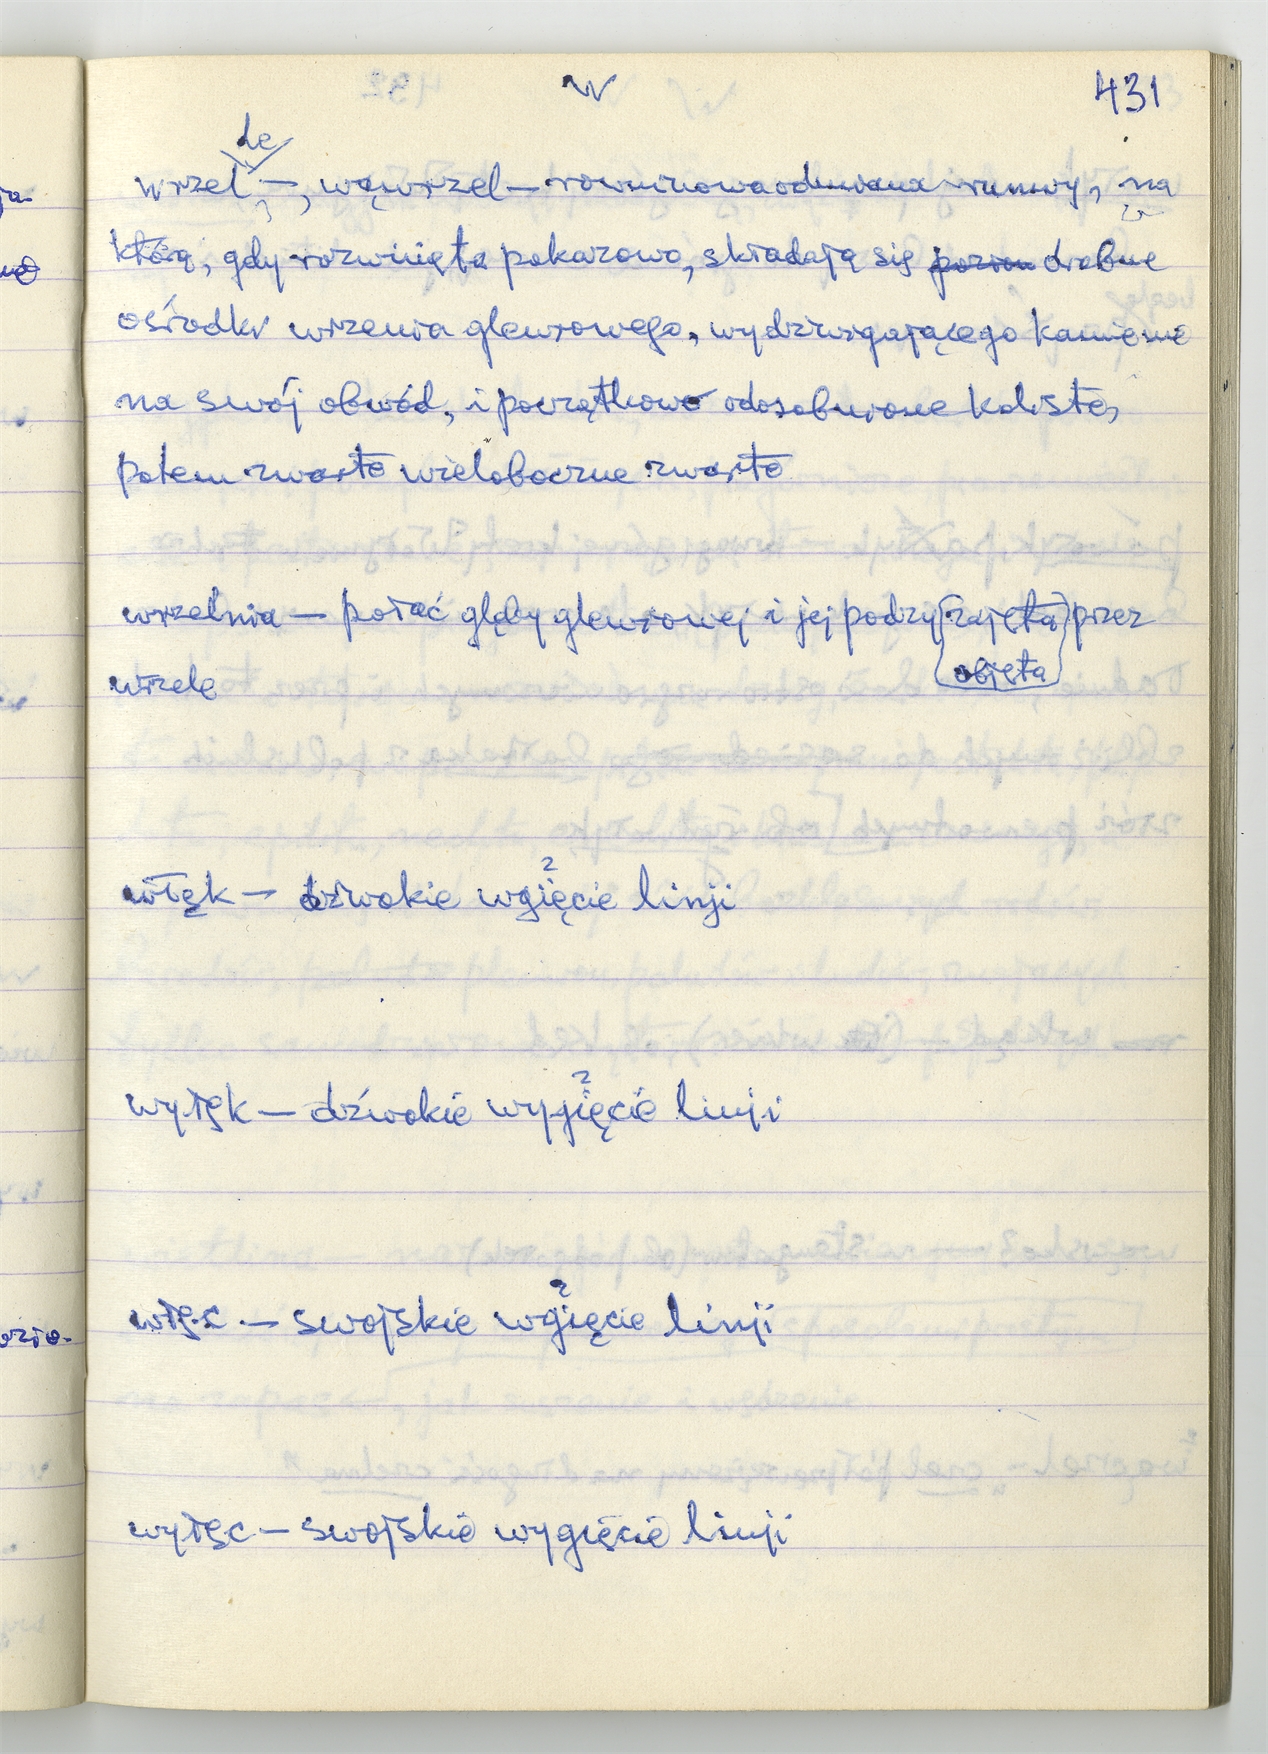 W 431
de
wrzel —, wąwrzel — równinowa odmiana runwy, na
którą, gdy rozwinięta pokazowo, składają się drobne
ośrodki wrzenia glejowego, wydźwigającego kamienie
na swój obwód, i początkowo odosobnione koliste,
potem zwarte wieloboczne zwarte
wrzelnia — połać gleby glejowej i jej podzy (zajęta) przez
objęta
wrzele
włęk — dźwokie wgięcie linji
wyłęk — dźwokie wygięcie linji
włęc — swojskie wgięcie linji
wyłęc — swojskie wygięcie linji